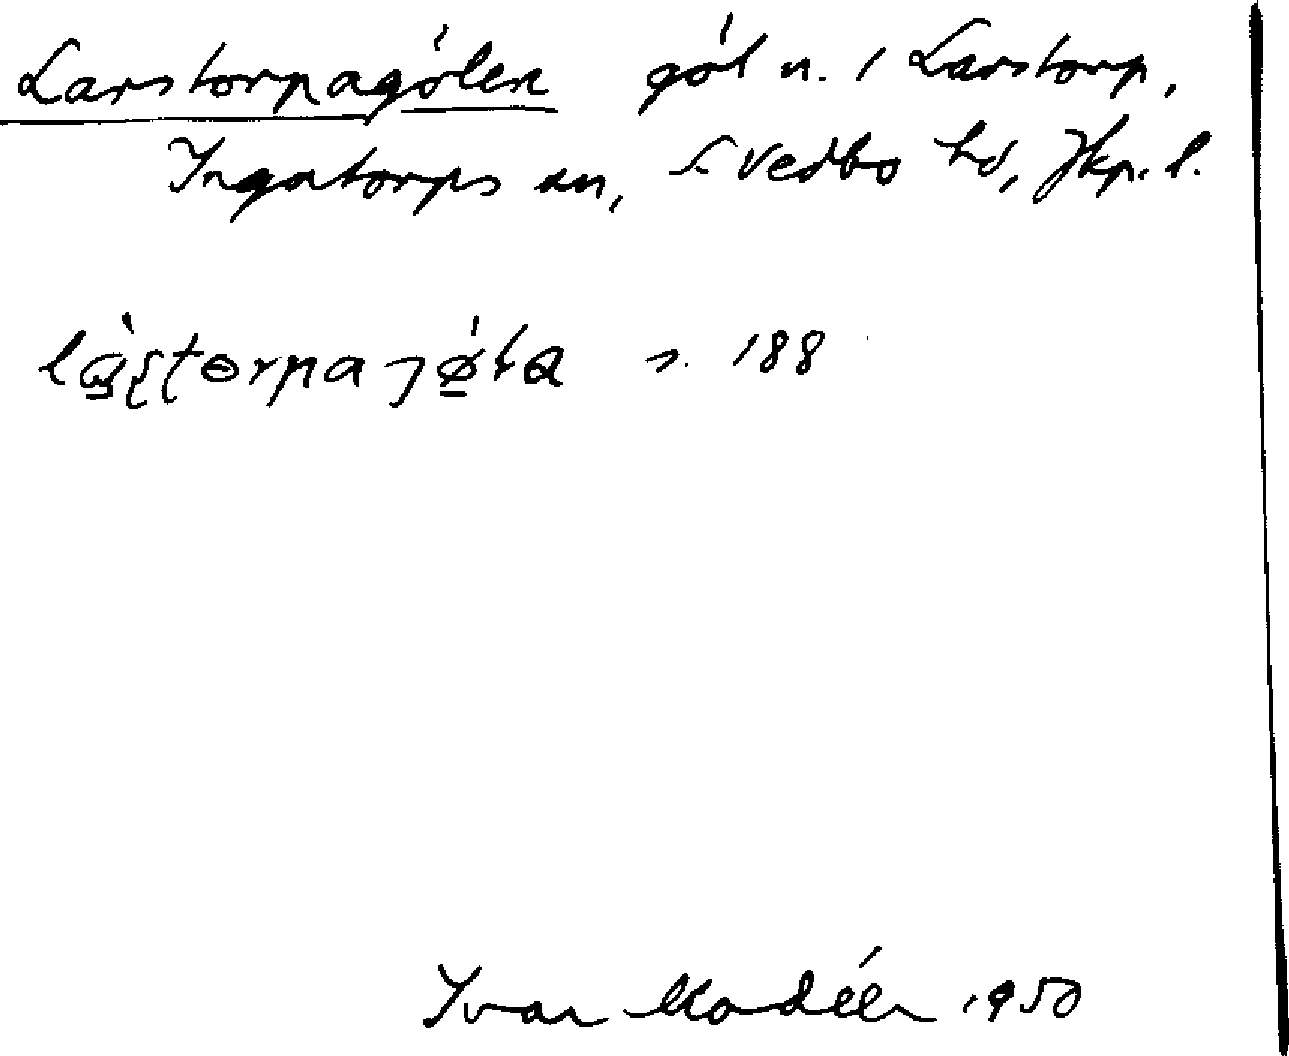 Larstorpagölen göl n. i Larstorp,
Ingatorps sn, S Vedbo hd, Jkp. l.
s. 188
Ivar Modéer 1950